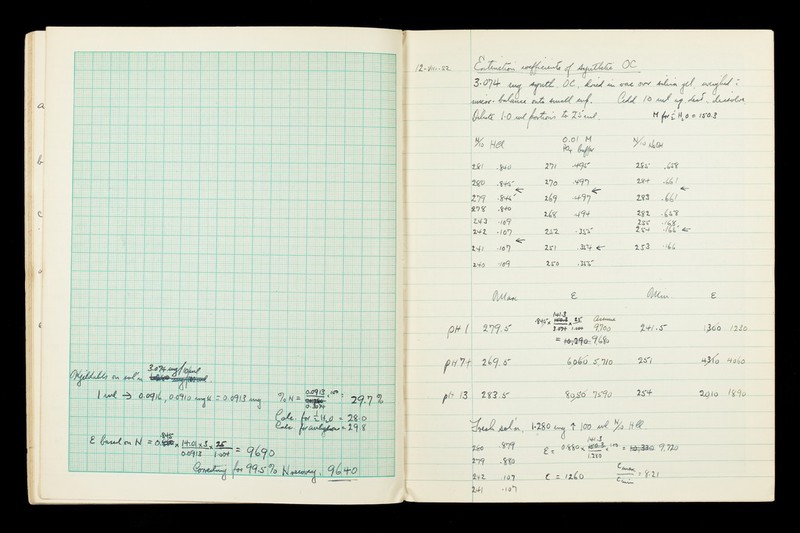 a
b
c
Kjeldahls on sol'n 3.074 mg/10ml
1 ml → 0.0916, 0.0910 mg N = 0.0913 mg
% N = 0.0913 / 0.3074 × 100 = 29.7 %
Calc for ½ H2O = 28.0
Calc for anhydrous = 29.8
ε based on N = .845 × 14.01 × 3 / 0.0913 × 25 / 1.004 = 9690
Correcting for 99.5% N recovery, 9640
12-VIII-52
Extinction coefficients of synthetic OC
3.074 mg synth. OC, dried in vac over silica gel, weighed :
micro-balance onto small surf. Add 10 ml aq. dist., dissolve
Dilute 1.0 ml portions to 25 ml. M for ½ H2O = 150.3
N/10 HCl 0.01 M PO4 buffer N/10 NaOH
281 .800 271 .495 285 .658
280 .845 270 .497 284 .661
279 .845 269 .497 283 .661
278 .840 268 .494 282 .658
243 .109 255 .168
242 .107 252 .355 254 .166
241 .107 251 .354 253 .166
240 .109 250 .355
λMax ε λMin ε
pH 1 279.5 .845 × 141.3 / 3.074 × 25 / 1.004 9700 241.5 1300 1230
= 10,290. 9680
pH 7+ 269.5 6060 5,710 251 4360 4060
pH 13 283.5 8050 7590 254 2010 1890
Fresh sol'n, 1.280 mg ↑ 100 ml N/10 HCl.
280 .879 ε = 0.880 × 141.3 / 1.280 × 100 = 9,720
279 .880
242 .107 ε = 1260 εmax / εmin = 8.21
241 .107